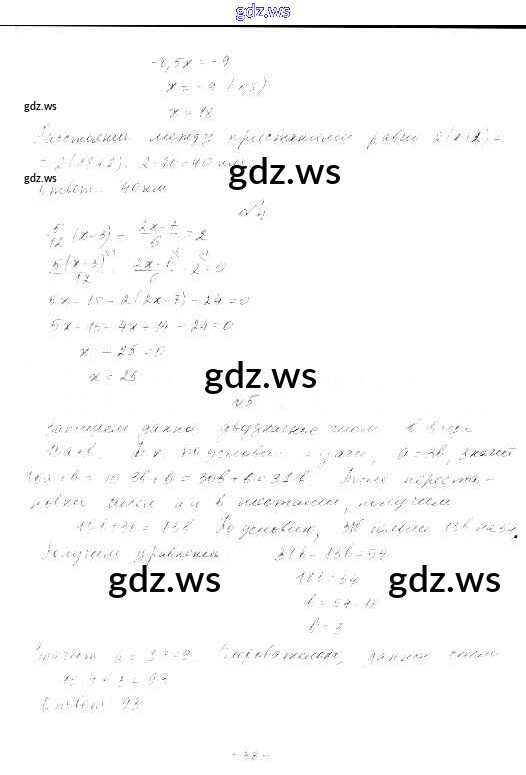 gdz.ws
-0,5x = -9
x = -9 : (-0,5)
gdz.ws
x = 18
Расстояние между пристанями равно 2(x+2) =
= 2(18+2) = 2·20 = 40 км
gdz.ws gdz.ws
Ответ: 40 км
№4
5/12 (x-3) - (2x-7)/6 = 2
5(x-3)/12 - (2x-7)/6 - 2 = 0
5x - 15 - 2(2x-7) - 24 = 0
5x - 15 - 4x + 14 - 24 = 0
x - 25 = 0
x = 25
gdz.ws
№5
Запишем данное двузначное число в виде
10a+b. Т.к. по условию задачи, a = 3b, значит
10a+b = 10·3b+b = 30b+b = 31b. После переста-
новки чисел a и b местами, получим
10b+3b = 13b. По условию, 31b больше 13b на 54.
Получим уравнение: 31b - 13b = 54
gdz.ws gdz.ws
18b = 54
b = 54:18
b = 3
Значит a = 9. Следовательно, данное число
10·9+3 = 93
Ответ: 93
- 38 -